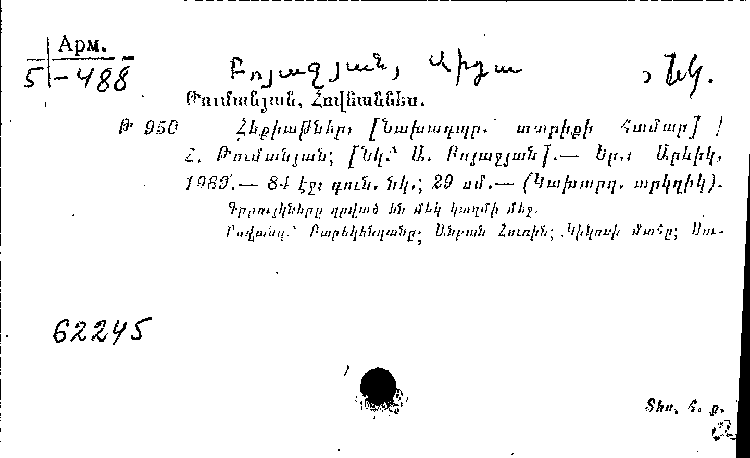 Арм.
5-488
Բոյաջյան, Աիդա նկ.
Թումանյան, Հովհաննես.
Թ 950 Հեքիաթներ, [Նախադպր. տարիքի համար] /
Հ. Թումանյան; [Նկ.՝ Ա. Բոյաջյան].— Եր.: Արևիկ,
1989.— 84 էջ: գուն. նկ.; 29 սմ.— (Կախարդ. արկղիկ).
Գրքուկները դրված են մեկ կազմի մեջ.
Բովանդ.՝ Բարեկենդանը; Անբան Հուռին; Կիկոսի մահը; Սու-
62245
Տես. հ. ք.